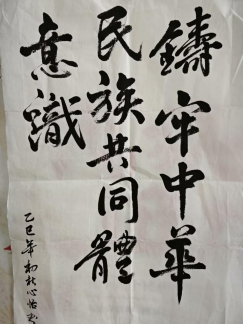 鑄牢中華
民族共同體
意識
乙巳年初秋心怡书